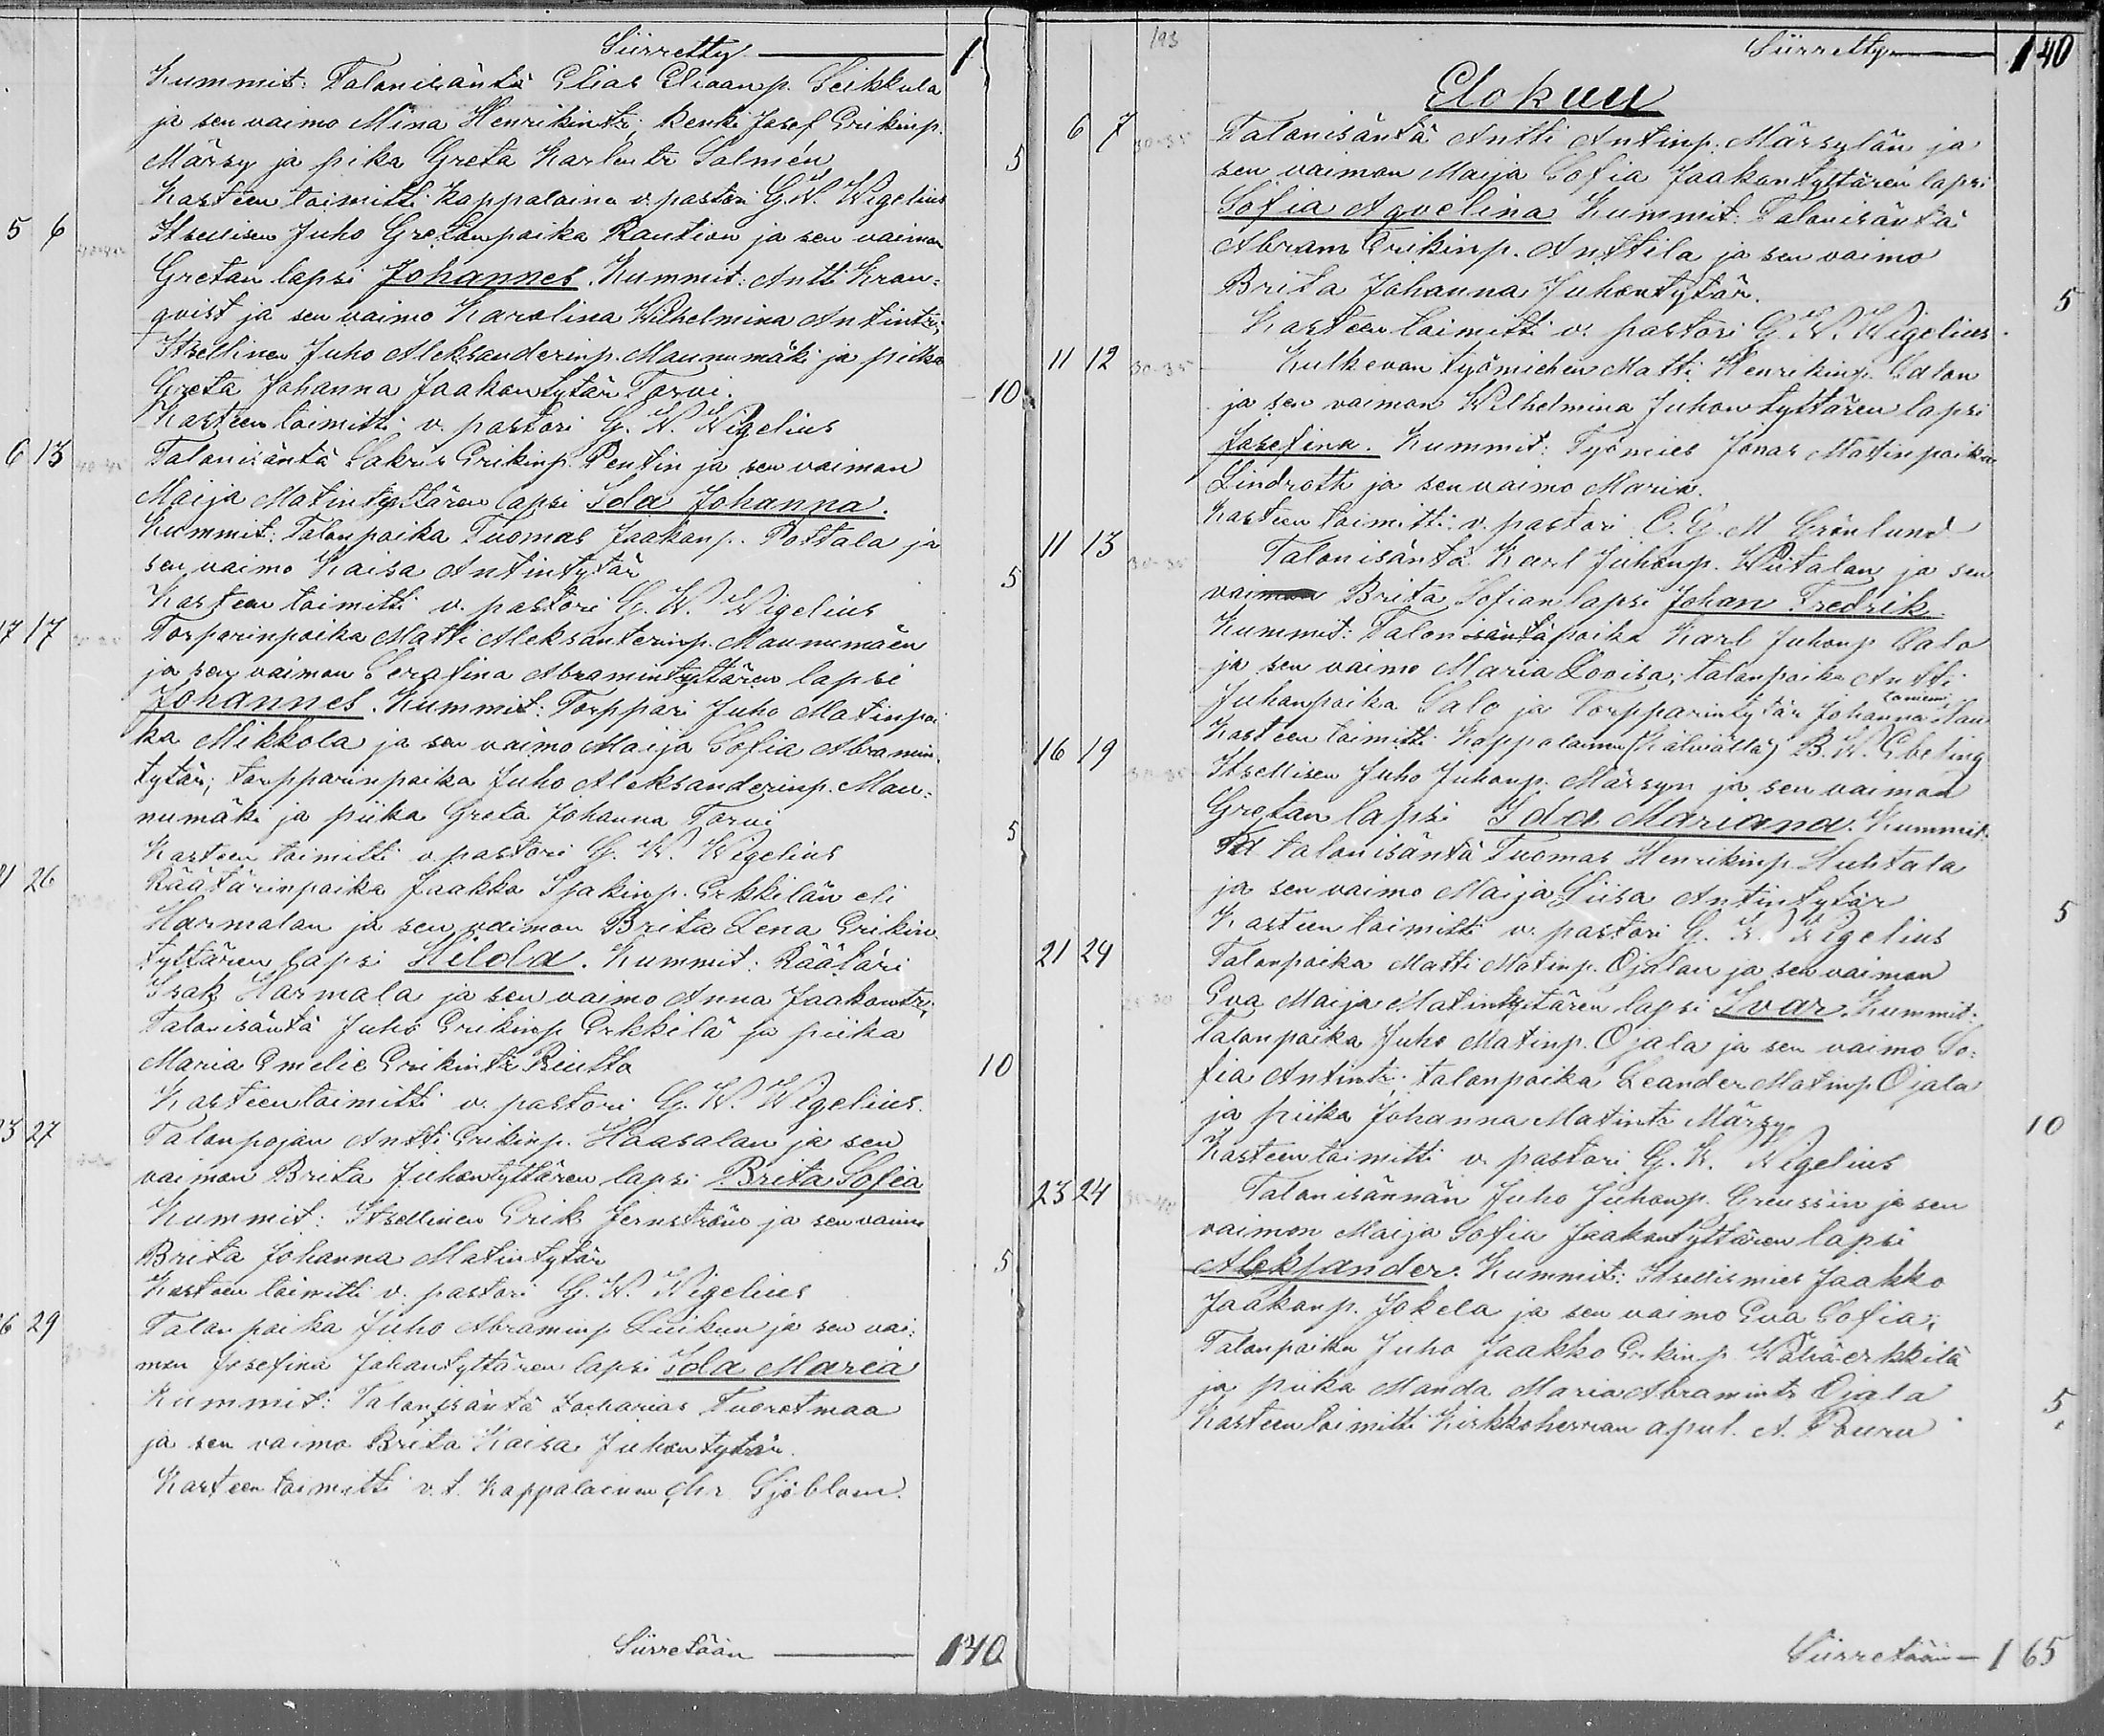 Siirretty — 1
Kummit: Talonisäntä Elias Eliaanp. Seikkula
ja sen vaimo Mina Henrikintr, Renki Josef Erikinp.
Märsy ja pika Greta Karlentr Salmén 5
Kasteen toimitti Kappalaine v. pastori G. W. Wigelius
5 6 Itsellisen Juho Gretanpoika Raution ja sen vaimon
Gretan lapsi Johannes. Kummit: Antti Kran=
qvist ja sen vaimo Karolina Wilhelmina Antintr;
Itsellinen Juho Aleksanderinp. Maunumäki ja piika
Greta Johanna Jaakontytär Torvi. 10
Kasteen toimitti v. pastori G. W. Wigelius
6 13 Talonisäntä Sakris Erikinp. Pentin ja sen vaimon
Maija Matintyttären lapsi Ida Johanna.
Kummit: Talonpoika Tuomas Jaakonp. Pottala ja
sen vaimo Kaisa Antintytär 5
Kasteen toimitti v. pastori G. W. Wigelius
17 17 Torparinpoika Matti Aleksanterinp. Maunumäen
ja sen vaimon Serafina Abramintyttären lapsi
Johannes. Kummit: Torppari Juho Matinpoi
ka Mikkola ja sen vaimo Maija Sofia Abramin
tytär; torpparinpoika Juho Aleksanderinp. Mau=
numäki ja piika Greta Johanna Torvi 5
Kasteen toimitti v. pastori G. W. Wigelius
21 26 Räätärinpoika Jaakko Isakinp. Erkkilän eli
Harmalan ja sen vaimon Brita Lena Erikin
tyttären lapsi Hilda. Kummit: Räätäri
Isak Harmala ja sen vaimo Anna Jaakontr;
Talonisäntä Juho Erikinp Erkkilä ja piika
Maria Emelie Erikintr Riutta 10
Kasteen toimitti v. pastori G. W. Wigelius.
23 27 Talonpojan Antti Erikinp. Haasalan ja sen
vaimon Brita Juhontyttären lapsi Brita Sofia
Kummit: Itsellinen Erik Jernström ja sen vaimo
Brita Johanna Matintytär 5
Kasteen toimitti v. pastori G. W. Wigelius
26 29 Talonpoika Juho Abraminp Luikun ja sen vai=
mon Josefina Johantyttären lapsi Ida Maria
Kummit: Talonisäntä Zacharias Tuoretmaa
ja sen vaimo Brita Kaisa Juhontytär.
Kasteen toimitti v.t. Kappalainen Chr Sjöblom.
Siirretään — 140
193 Siirretty — 140
Elokuu
6 7 30-35 Talonisäntä Antti Antinp. Märsylän ja
sen vaimon Maija Sofia Jaakontyttären lapsi
Sofia Aqvelina Kummit: Talonisäntä
Abram Erikinp. Anttila ja sen vaimo
Brita Johanna Juhontytär. 5
Kasteen toimitti v. pastori G. W. Wigelius.
11 12 30-35 Kulkevan työmiehen Matti Henrikinp. Salon
ja sen vaimon Wilhelmina Juhontyttären lapsi
Josefina. Kummit: Työmies Jonas Matinpoika
Lindroth ja sen vaimo Maria.
Kasteen toimitti v. pastori C. G. M Grönlund
11 13 30-35 Talonisäntä Karl Juhonp. Wiitalan ja sen
vaimon Brita Sofian lapsi Johan Fredrik
Kummit: Talonisäntäpoika Karl Juhonp Salo
ja sen vaimo Maria Lovisa; talonpoika Antti
Juhonpoika Salo ja Torpparintytär Johanna Lau
Kasteen toimitti Kappalainen (Kälviältä) B. W. Ebeling
16 19 Itsellisen Juho Juhonp. Märsyn ja sen vaimon
Gretan lapsi Ida Mariana. Kummit:
talonisäntä Tuomas Henrikinp. Huhtala
ja sen vaimo Maija Liisa Antintytär 5
Kasteen toimitti v. pastori G. W. Wigelius
21 24 Talonpoika Matti Matinp. Ojalan ja sen vaimon
25-30 Eva Maija Matintyttären lapsi Ivar. Kummit:
Talonpoika Juho Matinp. Ojala ja sen vaimo So=
fia Antintr; talonpoika Leander Matinp Ojala
ja piika Johanna Matintr Märsy 10
Kasteen toimitti v. pastori G. W. Wigelius
23 24 Talonisännän Juho Juhonp. Greussin ja sen
vaimon Maija Sofia Jaakontyttären lapsi
Aleksander. Kummit: Itsellismies Jaakko
Jaakonp. Jokela ja sen vaimo Eva Sofia;
Talonpoika Juho Jaakko Erkinp. Wähäerkkilä
ja piika Manda Maria Abramintr Ojala 5
Kasteen toimitti Kirkkoherran apul. A. Pouru
Siirretään — 165